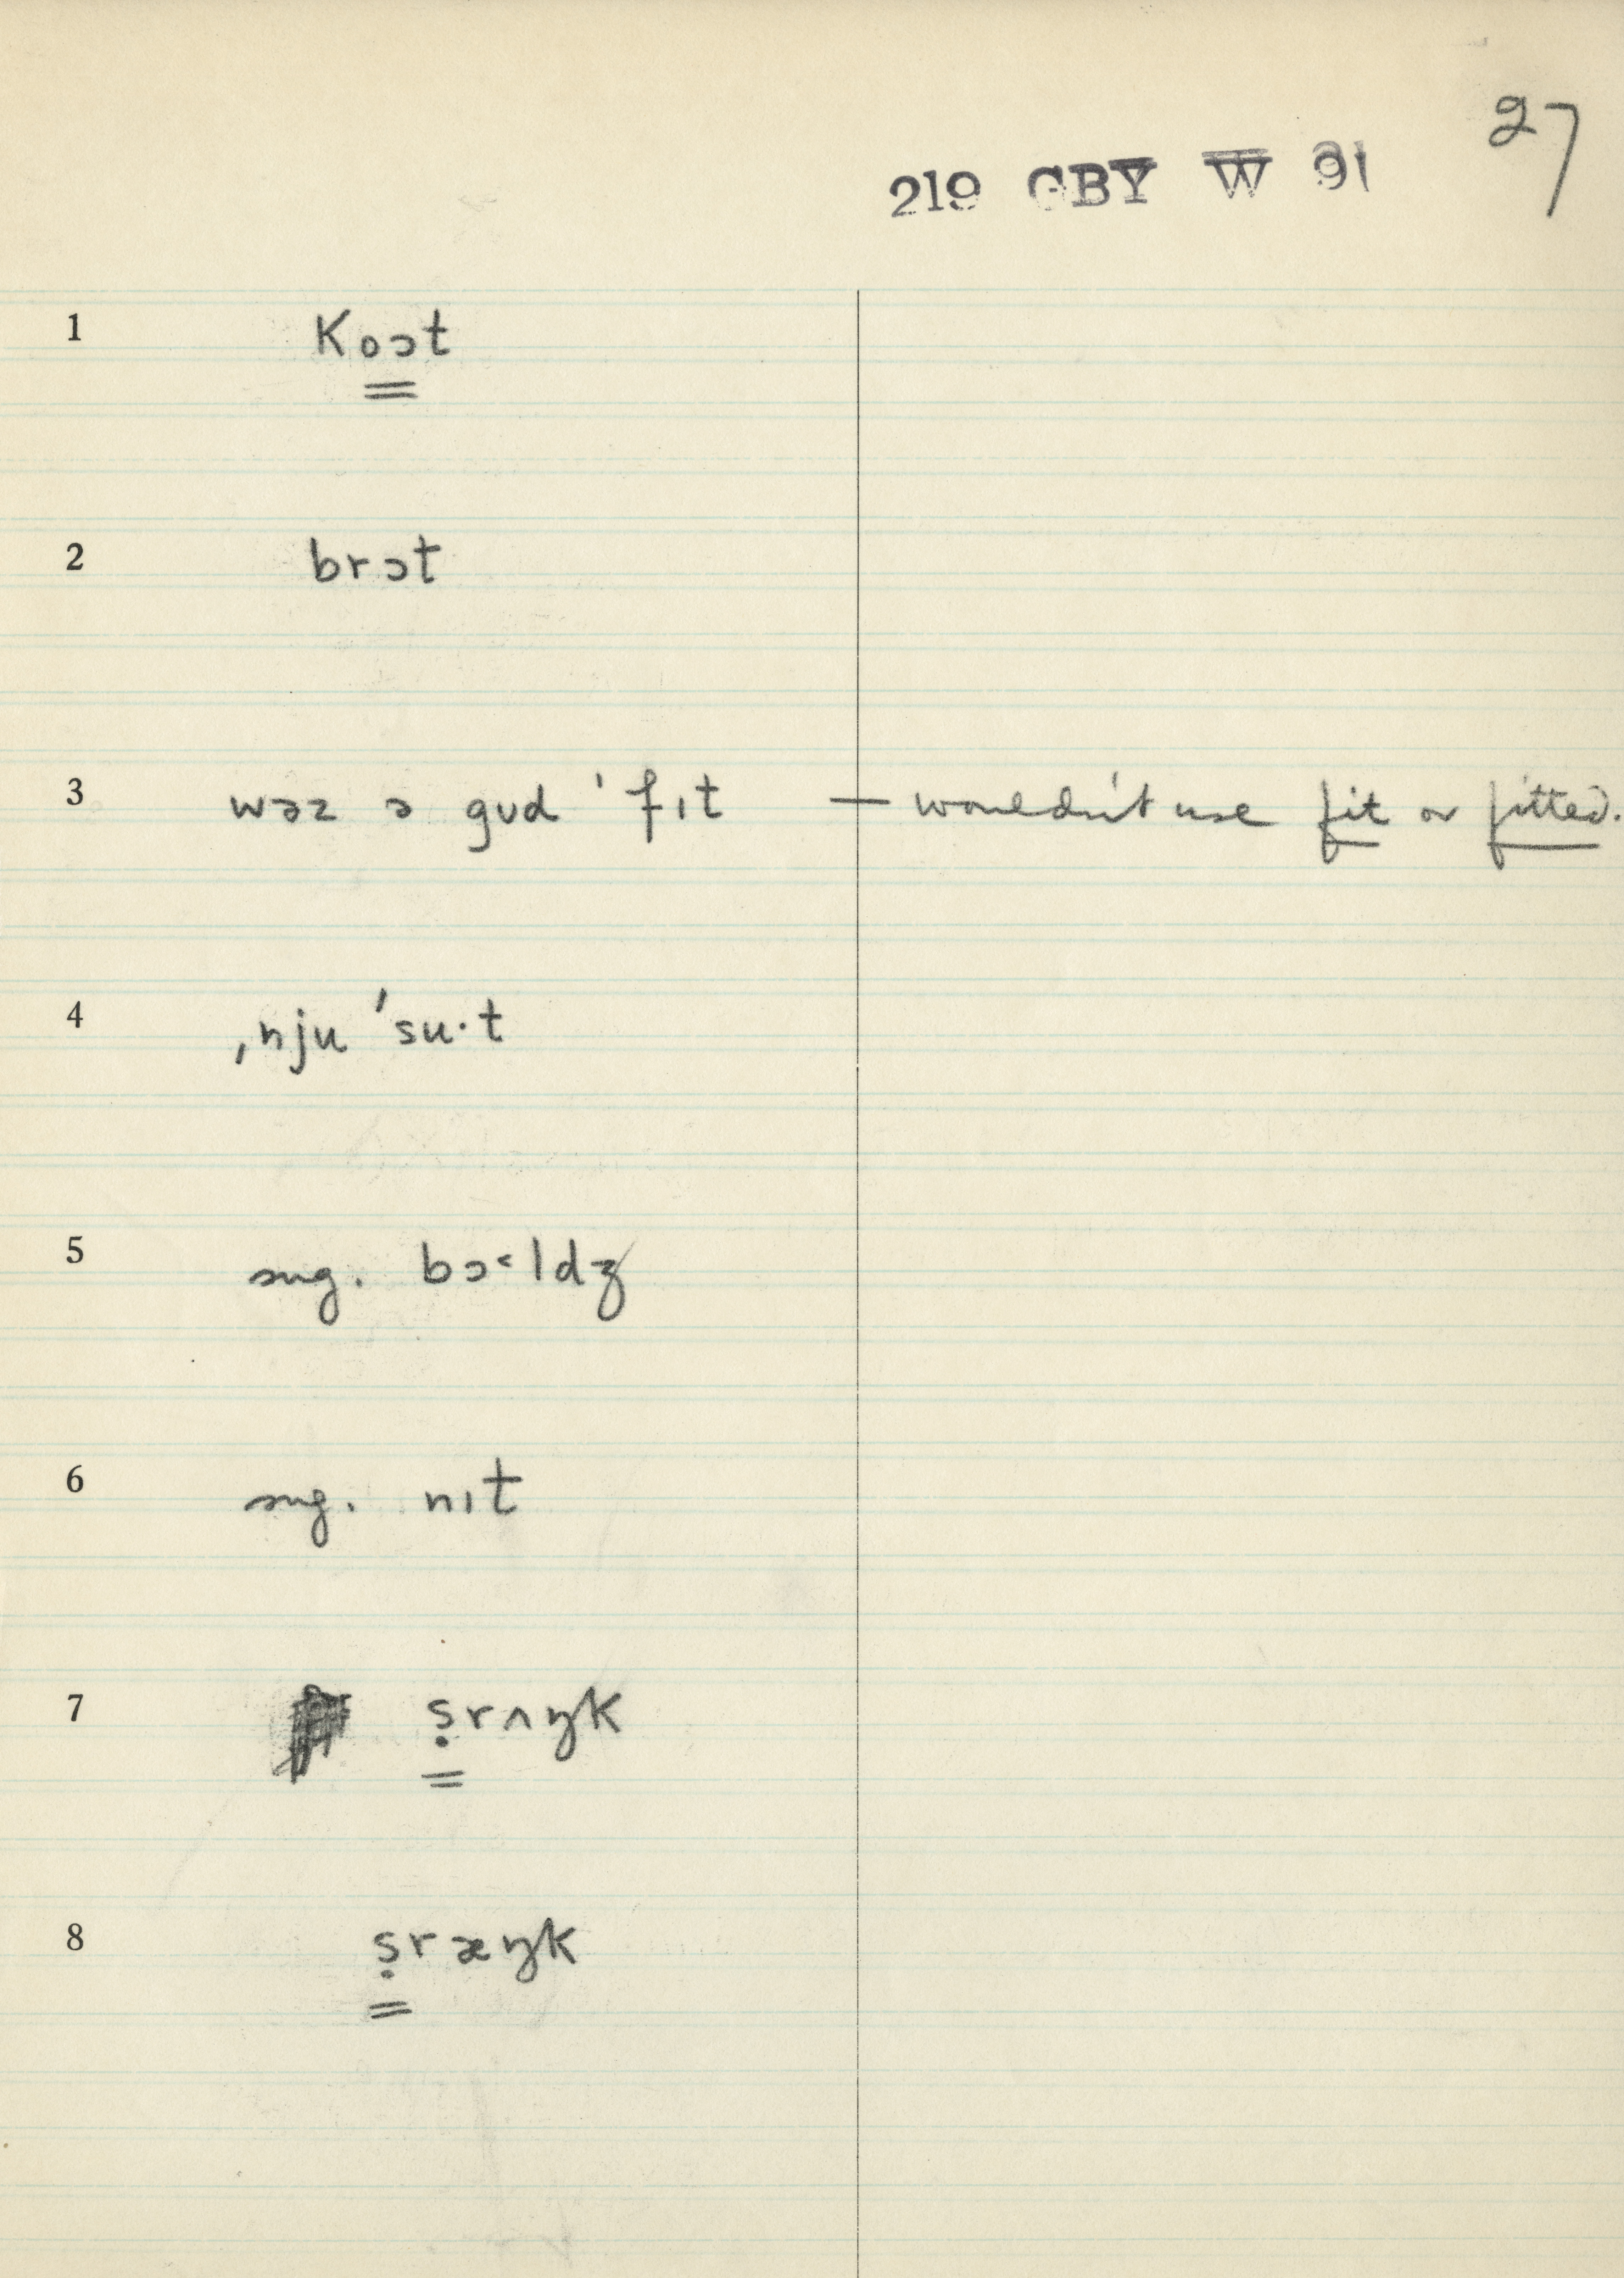 27
219 GBY W 91
1 koət
2 brɔt
3 wəz ə gʊd ˈfɪt — wouldn't use fit or fitted.
4 ˌnju ˈsu·t
5 sug. bɔ˂ldʒ
6 sug. nɪt
7 ṣrʌŋk
8 ṣræŋk